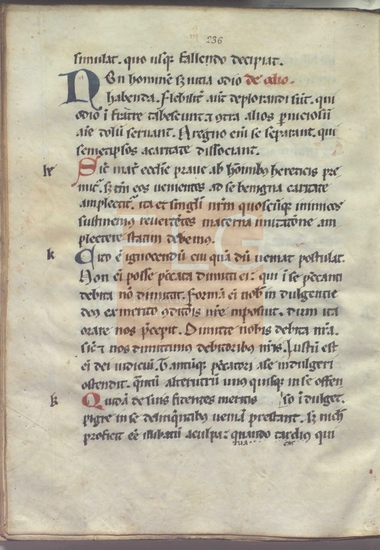 236
simulat. quo usq; fallendo decipiat.
Non homines sȝ uitia odio de odio.
habenda. flebiliꝰ aūt deplorandi sūt. qui
odio ī fratre tabescunt. ⁊ ɔtra alios pernitiosū
aīe dolū seruant. A regno eīm se separant. qui
semetipsos a caritate dissociant.
Sic mat̄ ecclīe praue ab hominibꝰ hereticis pre
mit̄. sȝ tn̄ eos uenientes ad se benigna caritate
amplectit̄. ita et singli nr̄m quoscūque inimicos
sustinemꝰ reuertētes materna imitatione am
plectere statim debemꝰ.
k Cito ē ignocendū cuiquā dū ueniat postulat.
Non eī posse peccata dimitti ei: qui ī se peccanti
debita nō dimittat. formā eī nob̄ indulgentie
deꝰ ex merito nr̄e imposuit. dum ita
orare nos p̄cepit. Dimitte nobis debita nr̄a.
sic̄ ⁊ nos dimittimꝰ debitoribꝰ nr̄is. Iustū est
eī dei iudiciū. peccatori a se indulgeri
ostendit. alterutrū unꝰ quisq; in se offen
k Quidā de suis fidentes meritis so īdulget.
pigre in se delinq̄ntibꝰ ueniā prestant. Sȝ nich̄
proficit eē a culpa: quando tardiꝰ qui